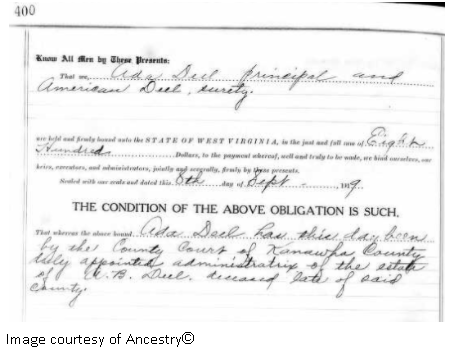 400
Know All Men by These Presents:
That we, Ada Deel principal and
American Deel, surety.
are held and firmly bound unto the STATE OF WEST VIRGINIA, in the just and full sum of Eight
Hundred Dollars, to the payment whereof, well and truly to be made, we bind ourselves, our
heirs, executors, and administrators, jointly and severally, firmly by these presents.
Sealed with our seals and dated this 8th day of Sept 19.
THE CONDITION OF THE ABOVE OBLIGATION IS SUCH,
That whereas the above bound Ada Deel has this day been
by the County Court of Kanawha County
duly appointed administratrix of the estate
of B. Deel, deceased late of said
County.
Image courtesy of Ancestry©